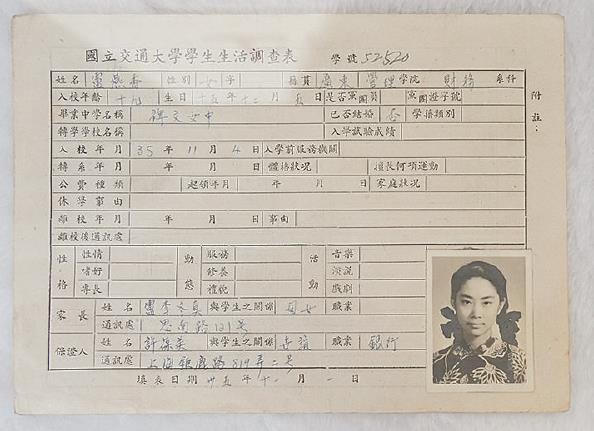 國立交通大學學生生活調查表 學號 52520
姓名 盧燕春 性別 女 字 籍貫 廣東 管理學院 財務 系科
入校年齡 十九 生日 十五年十二月 五日 是否黨團員 黨團證字號
畢業中學名稱 碑文女中 已否結婚 否 學籍類別
轉學學校名稱 入學試驗成績
入校年月 35年11月4日 入學前服務機關
轉系年月 年 月 日 體格狀況 擅長何項運動
公費種類 起領年月 年 月 家庭狀況
休學事由
離校年月 年 月 日 事由
離校後通訊處
性格 性情 動態 服務 活動 音樂
嗜好 修養 演說
專長 禮貌 戲劇
家長 姓名 盧李 與學生之關係 母女 職業
通訊處 思南路121
保證人 姓名 許 與學生之關係 職業 銀行
通訊處 上海 路819弄二号
填表日期 卅五年十一月 一日
附註：